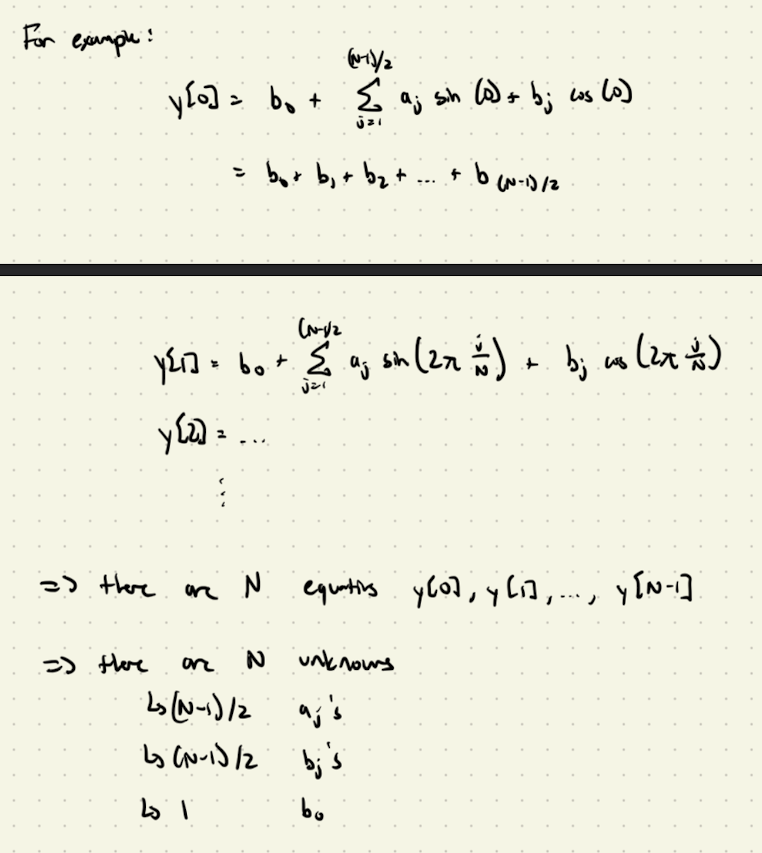 For example:
y[0] = b₀ + Σ_{j=1}^{(N-1)/2} a_j sin (0) + b_j cos (0)
= b₀ + b₁ + b₂ + ... + b_{(N-1)/2}
y[1] = b₀ + Σ_{j=1}^{(N-1)/2} a_j sin (2π j/N) + b_j cos (2π j/N)
y[2] = ...
⋮
=> there are N equations y[0], y[1], ..., y[N-1]
=> there are N unknowns
↳ (N-1)/2 a_j's
↳ (N-1)/2 b_j's
↳ 1 b₀